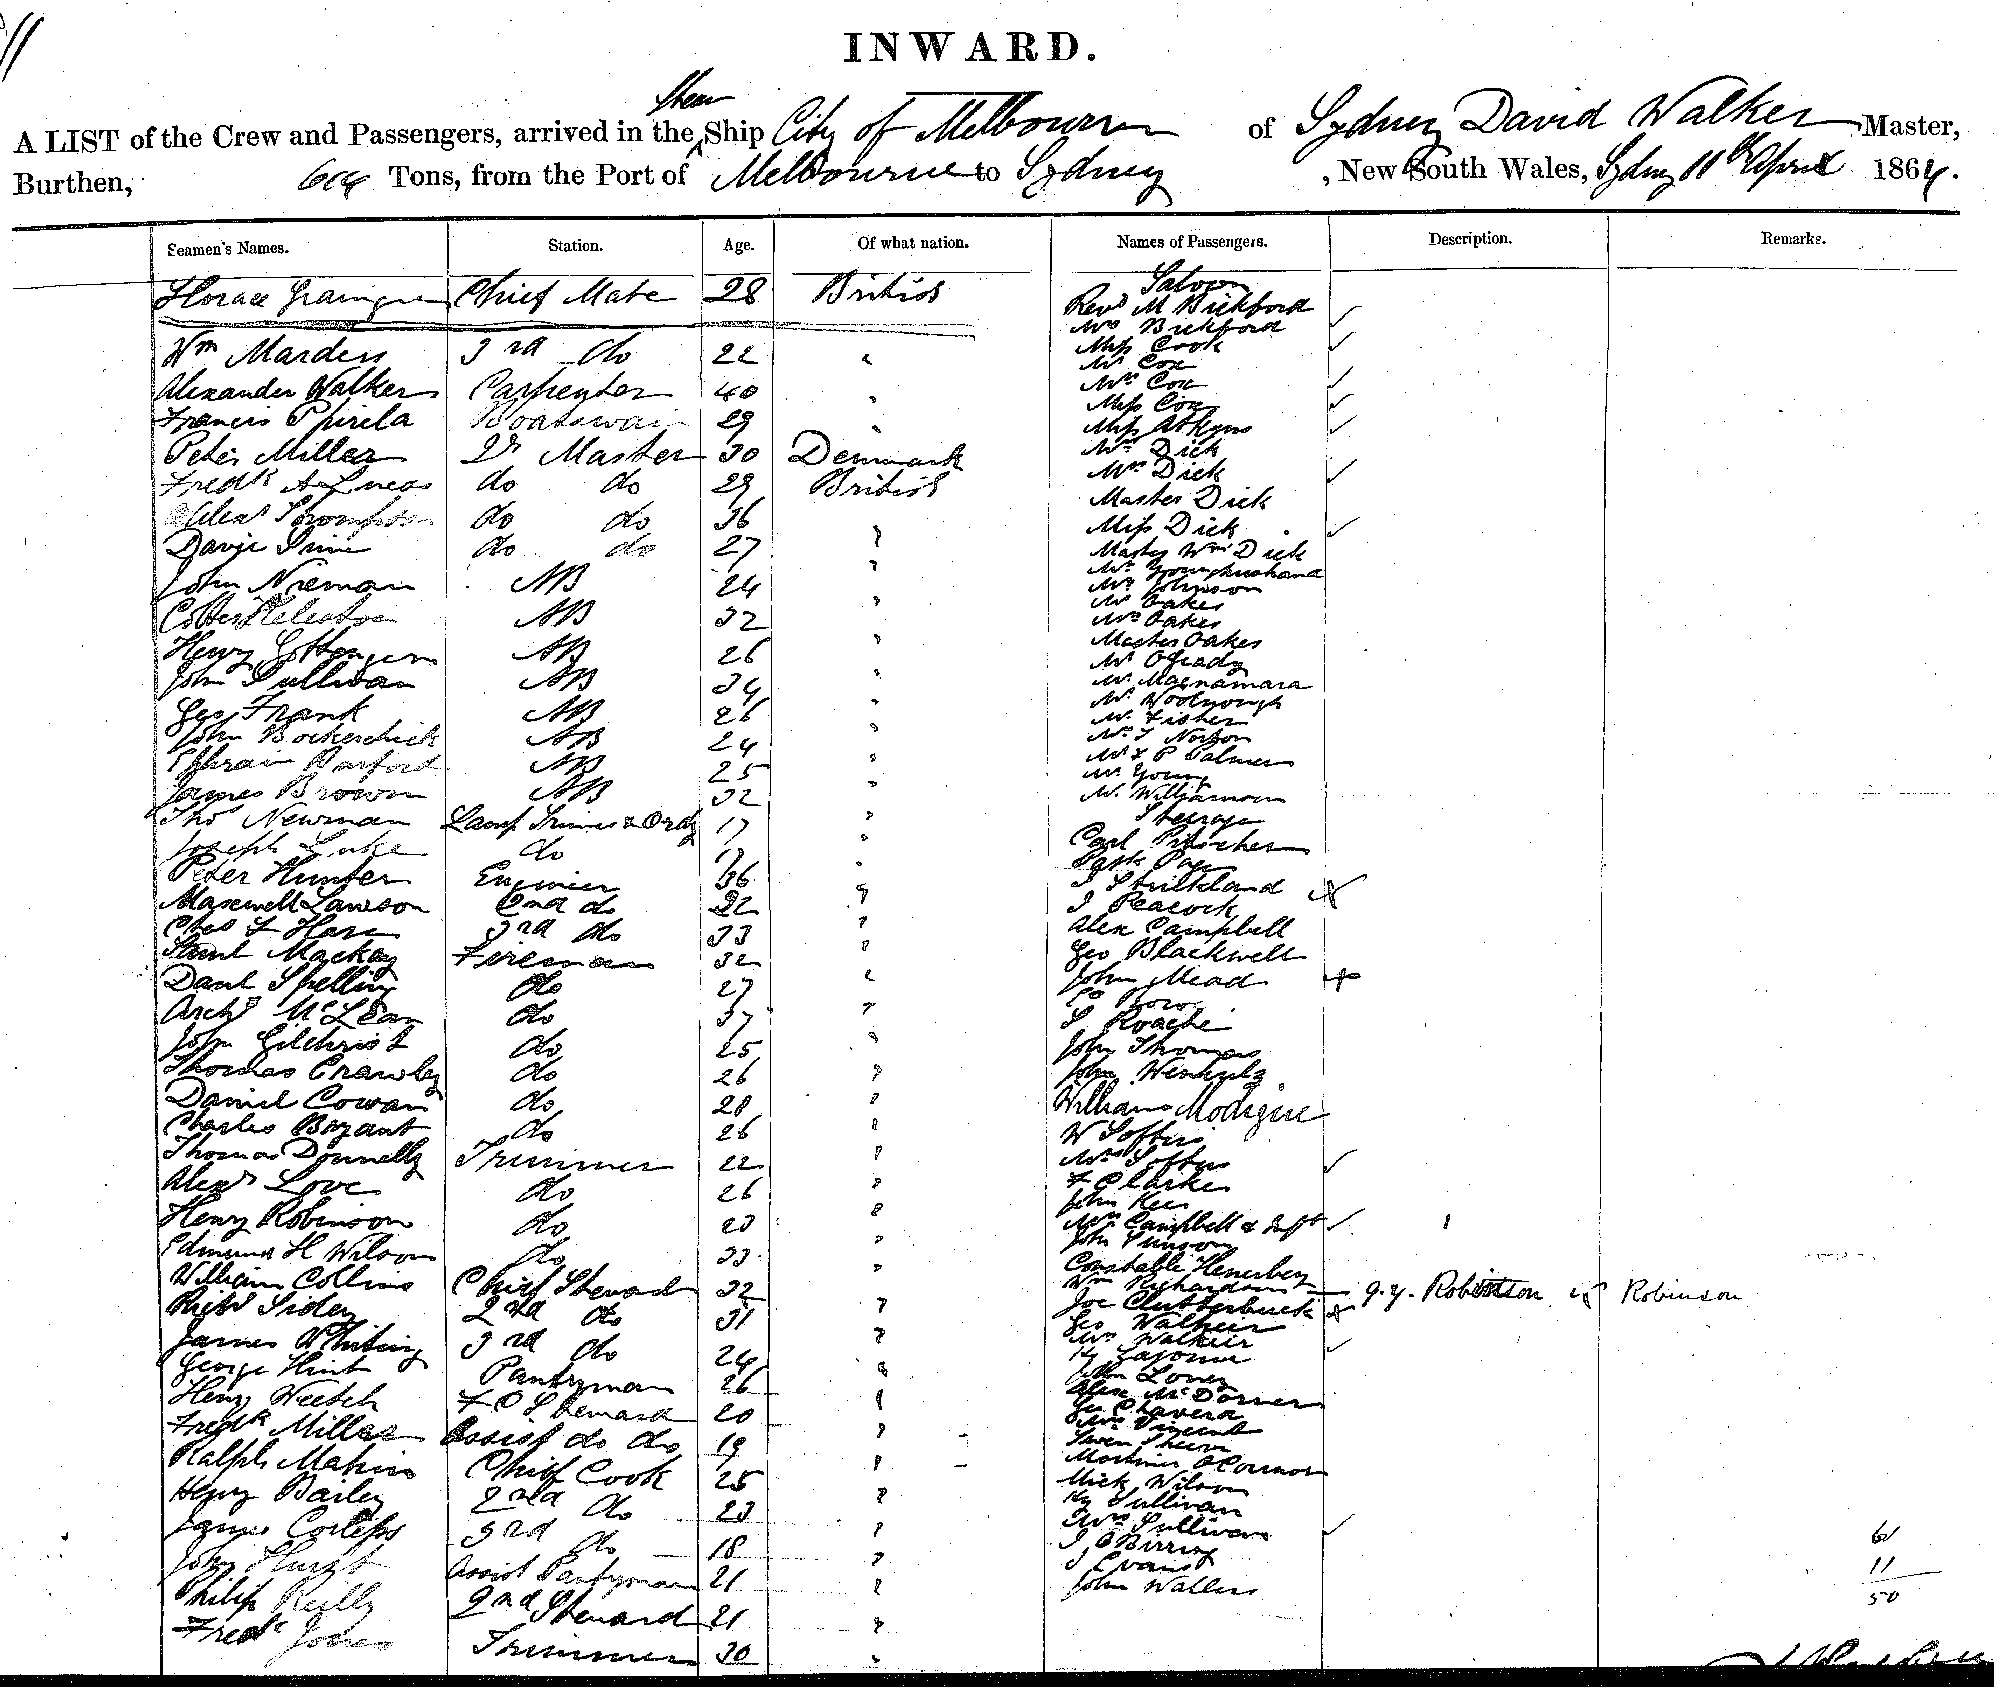 INWARD.
Steam
A LIST of the Crew and Passengers, arrived in the Ship City of Melbourne of Sydney David Walker Master,
Burthen, Tons, from the Port of Melbourne to Sydney , New South Wales, Sydney 11th April 1864.
Seamen's Names. Station. Age. Of what nation. Names of Passengers. Description. Remarks.
Horace Chief Mate 28 British
Wm Marden 3rd do 22 "
Alexander Walker Carpenter 40 "
Francis Boatswain 29 "
Peter Miller Qr Master 30 Denmark
Fredk A Lucas do do 29 British
Alexr Thompson do do 36 "
David Sim do do 27 "
John Nieman AB 24 "
AB 32 "
Henry AB 26 "
John Sullivan AB 34 "
Geo Frank AB 26 "
John AB 24 "
Ephraim Barford AB 25 "
James Brown AB 32 "
Thos Newman Lamp Trimmer & Ordy 17 "
Joseph Luke do 19 "
Peter Hunter Engineer 36 "
Maxwell Lawson 2nd do 22 "
Chas F Hare 3rd do 33 "
Saml Mackay Fireman 32 "
Danl Spelling do 27 "
Archd McLean do 37 "
John Gilchrist do 25 "
Thomas Crawley do 26 "
Daniel Cowan do 28 "
Charles Bryant do 26 "
Thomas Donnelly Trimmer 22 "
Alexr Love do 26 "
Henry Robinson do 23 "
Edmund H Wilson do 33 "
William Collins Chief Steward 32 "
Richd Siden 2nd do 31 "
James Whiting 3rd do 24 "
George Hint Pantryman 26 "
Henry Veetch F C Steward 20 "
Fredk Miller Assist do do 19 "
Ralph Makins Chief Cook 25 "
Henry Barley 2nd do 23 "
James Corless 3rd do 18 "
John Hurst Assist Pantryman 21 "
Philip Reilly 2nd Steward 21 "
Fredk Jones Trimmer 30 "
Saloon
Revd M Bickford
Mrs Bickford
Miss Cook
Mr Cox
Mrs Cox
Miss Cox
Miss Atkyns
Mr Dick
Mrs Dick
Master Dick
Miss Dick
Master Wm Dick
Mr Younghusband
Mr Johnson
Mr Oakes
Mrs Oakes
Master Oakes
Mr OGrady
Mr Macnamara
Mr Woolnough
Mr Fisher
Mr J Norton
Mr & P Palmer
Mr Young
Mr Williamson
Steerage
Carl
J Strickland
J Peacock
Alex Campbell
Geo Blackwell
John Mead
S Roache
John Thomas
John
William
W Loftus
Mrs Loftus
F Clarke
John Kees
Mrs Campbell & Inft
John
Constable
Wm Richardson
Joe Clutterbuck G. Y. Robinson Robinson
Geo Walkeir
Mrs Walkeir
Hy
John Lowry
Alex
Geo
Mrs Vincent
Mortimer OConnor
Mick Wilson
Hy Sullivan
Mrs Sullivan
J
J Evans
John Wallis
61
11
50